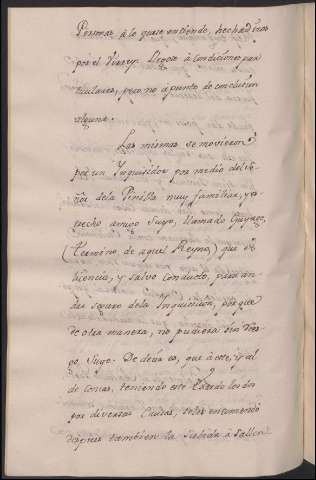 Personas à lo que se entiende, hechadizas
por el Virrey. Llegose à condiciones par
ticulares, pero no à punto de conclusion
alguna.
Las mismas se movieron
por un Inquisidor por medio del Se
ñor de la Pinilla muy familiar, y es
trecho amigo Suyo, llamado
(Termino de aquel Reyno) que es
licencia, y salvo conducto, para an
dar seguro de la Inquisicion, porque
de otra manera, no pudiera sin
go Suyo. De decir es, que à este, y al
de teniendo este
por diversas Causas, se les encomendò
despues tambien la Subida à Sallen